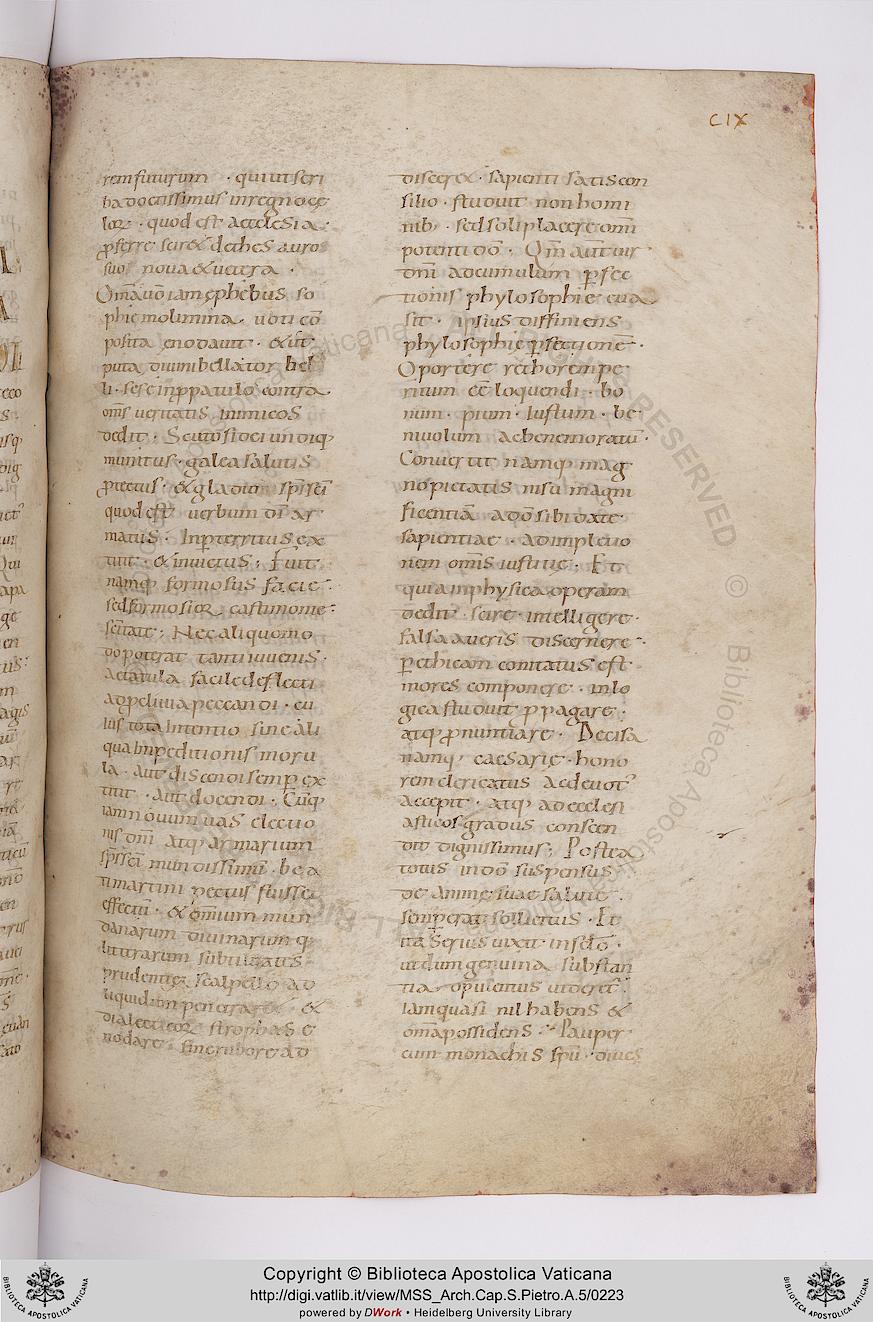 CIX
rem futurum · qui ut scri
ba doctissimus in regno cę
lor̄ · quod est aecclesia ·
p̄ferre sciret de thesauro
suo nova & vetera ·
Om̄a v̄o iam ephebus so
phie molimina · voti cō
posita enodavit · & ut
puta divini bellator bel
li · sese in ppatulo contra
om̄s veritatis inimicos
dedit · Scuto fidei undiq;
munitus · galea salutis
p̄tectus · & gladiū sp̄s sc̄i
quod est verbum dī ar
matus · Inp̄territus ex
titit · & invictus ; Fuit
namq; formosus facie ·
sed formosior castimonie
sc̄itate ; Nec aliquo mo
do poterat tanti iuvenis ·
aetatula facile deflecti
ad peliuia peccandi · cu
ius tota intentio sine ali
qua inpeditionis moru
la · aut discendi semp ex
titit · aut docendi · Cūq;
iam novum vas electio
nis dn̄i atq; armarium
sp̄s sc̄i mundissimū · bea
ti martini pectus fuisset
effectū · & omnium mun
danarum divinarum q;
litterarum subtilitates
prudentię scalpello ad
liquidum penetraret · &
dialecticor strophas e
nodare · sine rubore ad
disceret · sapienti satis con
silio · studuit non homi
nib; · sed soli placere om̄i
potenti dō · Qm̄ aut̄ vir
dn̄i ad cumulum p̄fec
tionis phylosophie eva
sit · ipsius diffiniens
phylosophię p̄fectione ·
Oportere rethorem pe
ritum eē loquendi · bo
num · pium · Iustum · be
nivolum ac bene moratū ·
Convertit namq; mag
no pietatis nisu magni
ficentiā a dō sibi datę
sapientiae · ad impletio
nem om̄is iustitię · Et
quia in physica operam
dedit · scire · intelligere ·
falsa a veris discernere ·
p̄ ethicam conitatus est
mores componere · in lo
gica studuit p̄pagare ·
atq; p̄nuntiare · Decisa
namq; caesarię · hono
rem clericatus ac devot'
accepit · atq; ad ecclesi
asticos gradus conscen
dit dignissimus ; Postea
totus in dō suspensus
de animę suae salute ·
semp̄ erat sollicitus · Et
ita Serius vixit in sc̄lo ·
ut dum genuina substan
tia opulentus videret' ·
Iam quasi nil habens &
om̄a possidens · Pauper
cum monachis sp̄ū · dives
Copyright © Biblioteca Apostolica Vaticana
http://digi.vatlib.it/view/MSS_Arch.Cap.S.Pietro.A.5/0223
powered by DWork • Heidelberg University Library